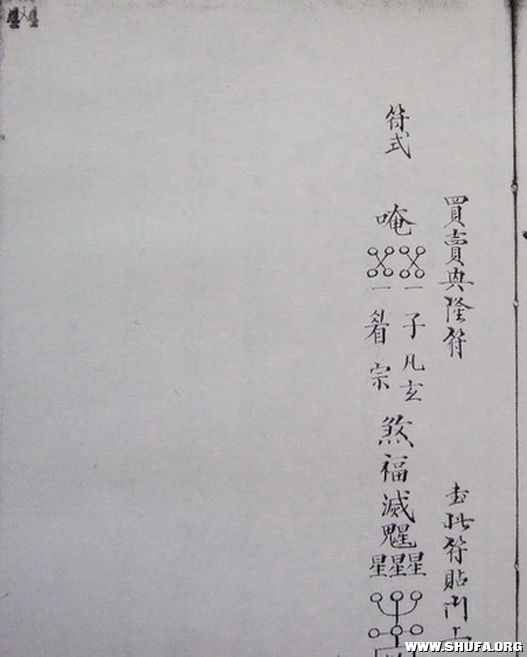 買賣典隆符
書此符貼門上
符式
唵
一 一
子凡玄
宗
煞福滅
星星星
WWW.SHUFA.ORG